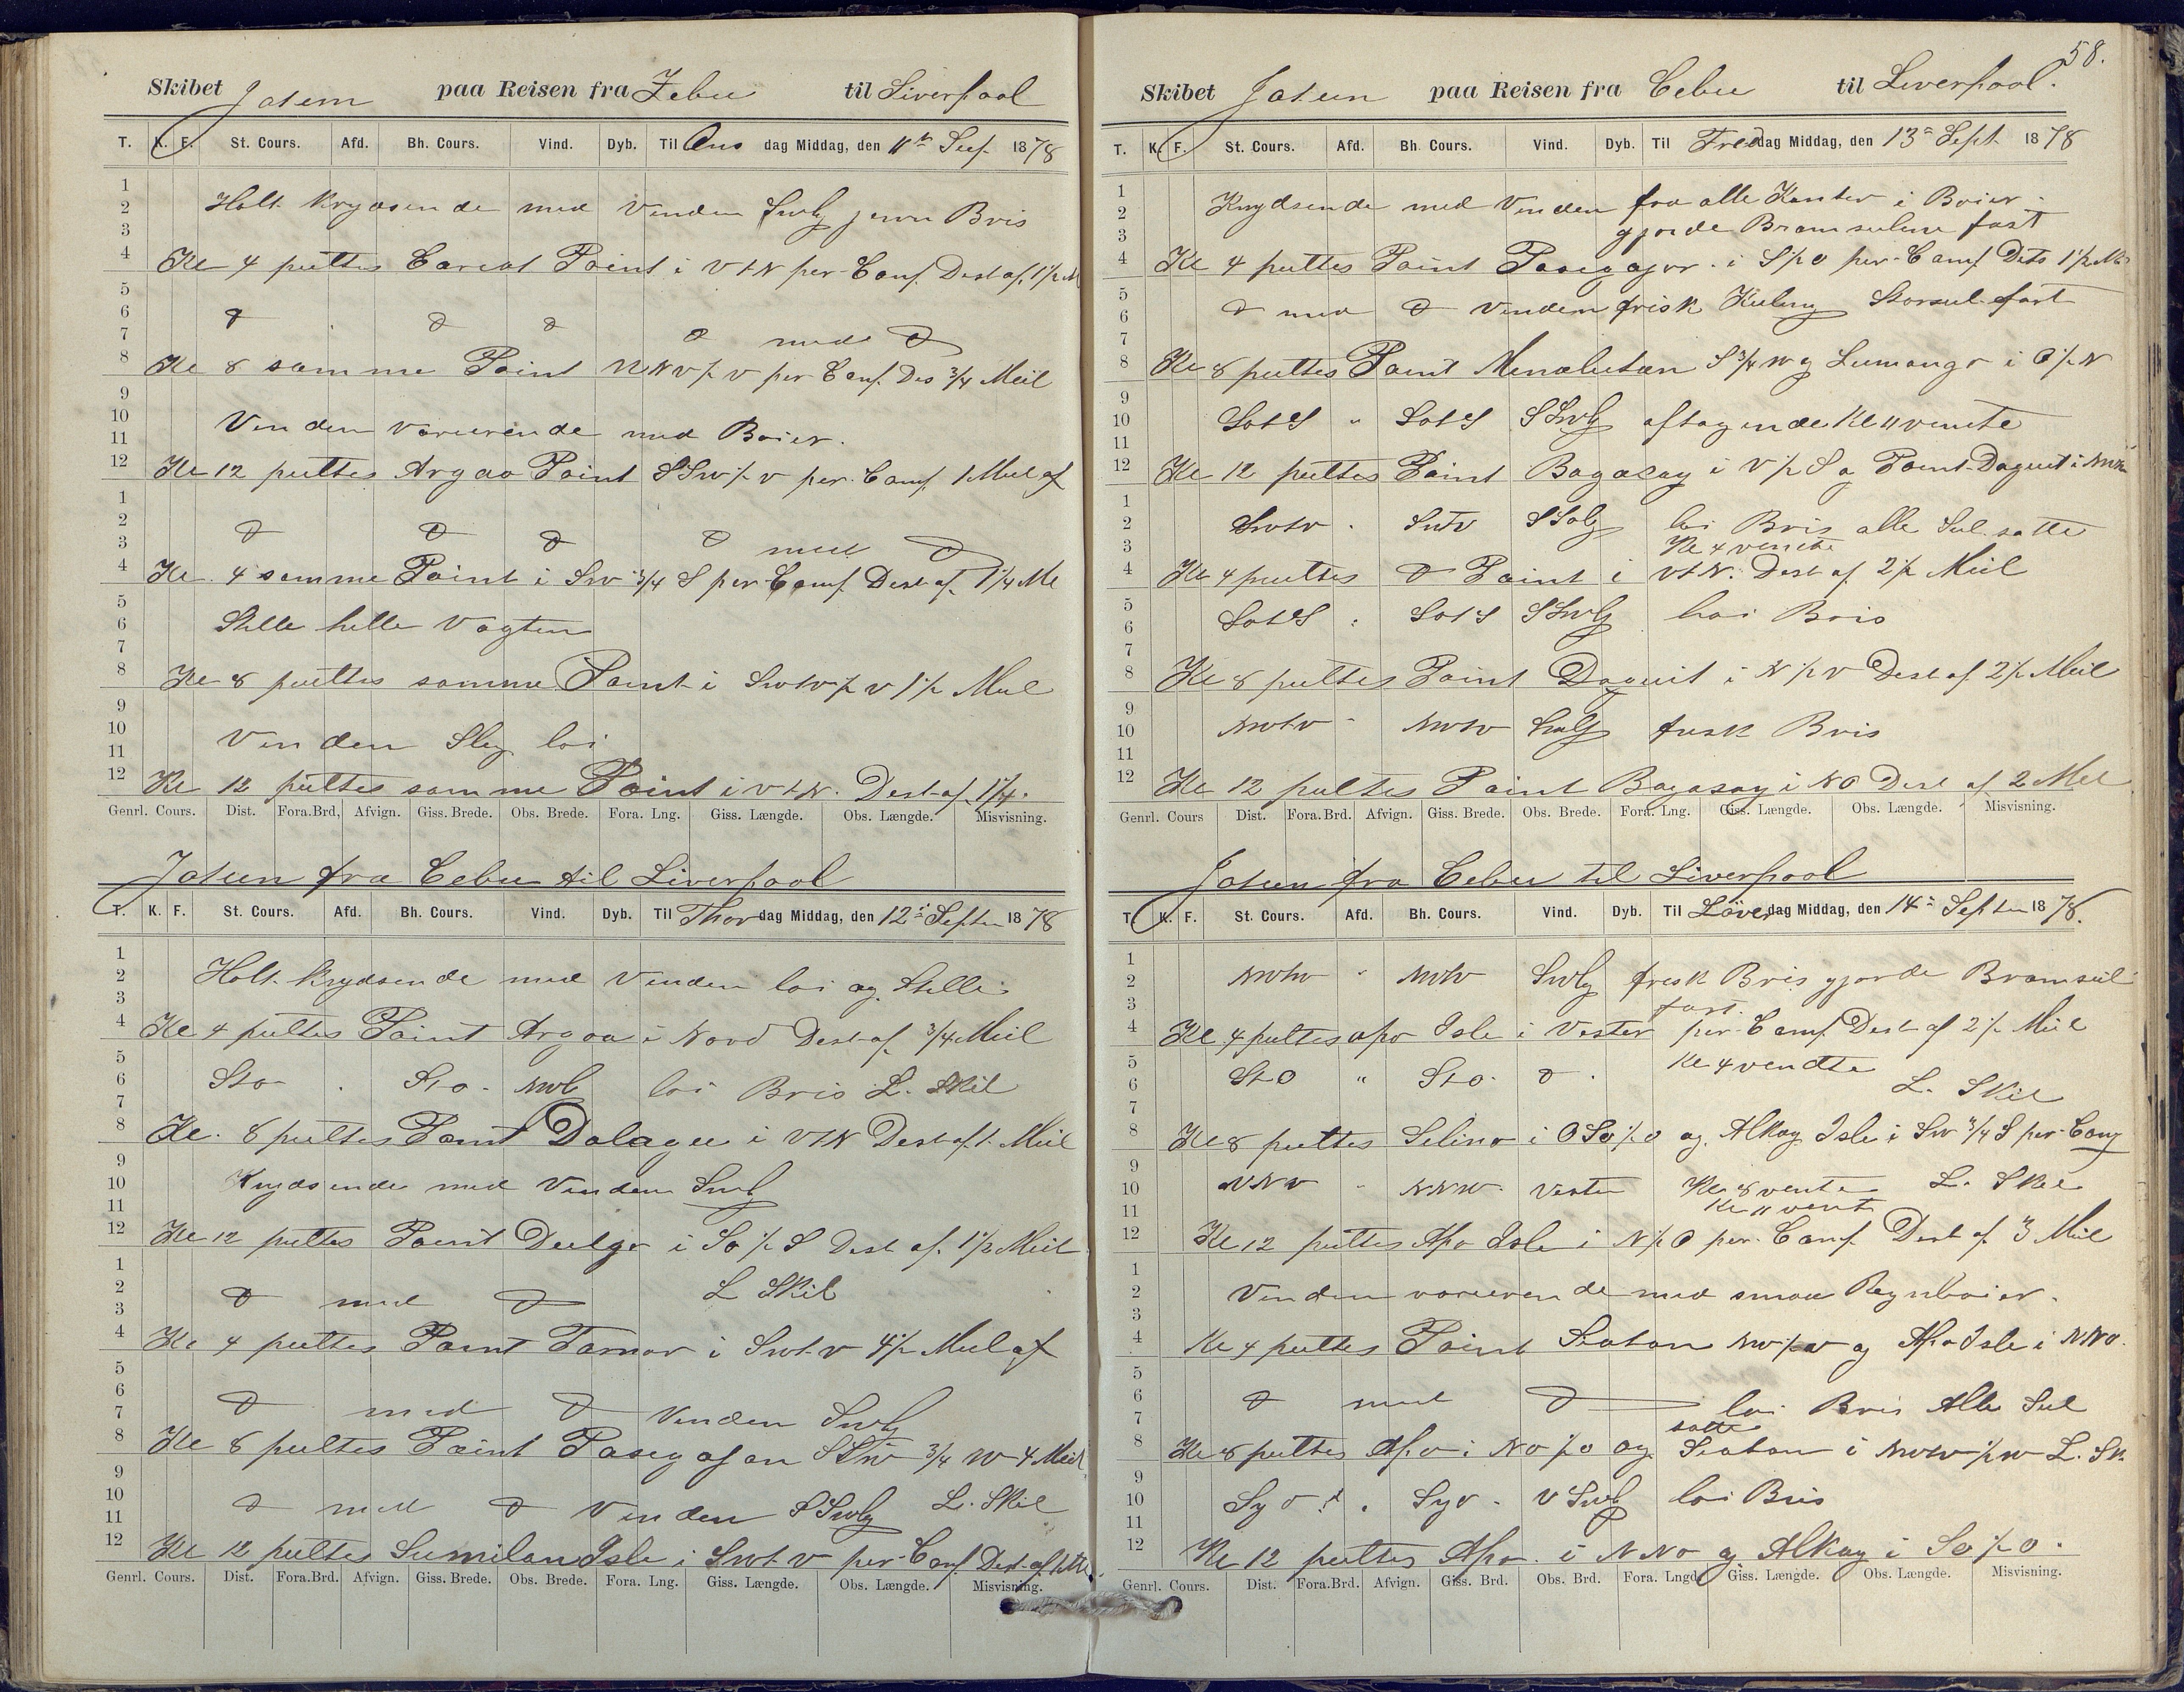 Skibet Jatun paa Reisen fra Zebu til Liverpool
T. K. F. St. Cours. Afd. Bh. Cours. Vind. Dyb. Til Ons dag Middag, den 11te Sep. 1878
1
2 Holt krydsende med Vinden Swlg jevn Bris
3
4 Kl 4 peiltes Carcat Point i VtN per Comp. Dest af 1½ M
5
6 d d d d med d
7
8 Kl 8 samme Point NNV½V per Comp. Des ¾ Meil
9
10 Vinden varierende med Boier.
11
12 Kl 12 peiltes Argao Point SSw½v per. Comp. 1 Meil af
1
2 d d d d med d
3
4 Kl. 4 samme Point i Sw ¾ S per Comp. Dest af. 1¼ Ml
5
6 Stille hele Vagten
7
8 Kl 8 peiltes samme Point i Swtv½v 1½ Meil
9
10 Vinden Slg loi
11
12 Kl 12 peiltes samme Point i vtN. Dest af 1¼.
Genrl. Cours. Dist. Fora.Brd, Afvign. Giss. Brede. Obs. Brede. Fora. Lng. Giss. Længde. Obs. Længde. Misvisning.
Jatun fra Cebu til Liverpool
T. K. F. St. Cours. Afd. Bh. Cours. Vind. Dyb. Til Thor dag Middag, den 12te Septer 1878
1
2 Holt krydsende med Vinden loi og Stille
3
4 Kl 4 peiltes Point Argao i Nord Dest af ¾ Meil
5
6 Sto . Sto. Nwl loi Bris L. Skil
7
8 Kl. 8 peiltes Point Dalague i VtN Dest af 1. Meil
9
10 Krydsende med Vinden Swl
11
12 Kl 12 peiltes Point Duljo i So½S Dest af. 1½ Meil
1
2 d med d L Skil
3
4 Kl 4 peiltes Point Tamar i Swt v 4½ Meil af
5
6 d med d Vinden Swlg
7
8 Kl 8 peiltes Point Pasegajan SSw ¾ W 4 Meil
9
10 d med d Vinden SSwlg L. Skil
11
12 Kl 12 peiltes Sumilan Isle i Swt v per. Comp. Dest af
Genrl. Cours. Dist. Fora.Brd. Afvign. Giss. Brede. Obs. Brede. Fora. Lng. Giss. Længde. Obs. Længde. Misvisning.
58.
Skibet Jatun paa Reisen fra Cebu til Liverpool.
T. K. F. St. Cours. Afd. Bh. Cours. Vind. Dyb. Til Fredag Middag, den 13de Sept. 1878
1
2 Krydsende med Vinden fra alle Kanter i Boier.
3 gjorde Bramseilene fast
4 Kl 4 peiltes Point Pasegajor. i S½O per. Comp Dets 1½ Ml
5
6 d med d Vinden frisk Kuling Storseil fast
7
8 Kl 8 peiltes Point Menalutan S ¾ W og Lumango i O½N
9
10 SotS " SotS SSwlg aftagende Kl 11 vente
11
12 Kl 12 peiltes Point Bagacay i V½S og Point Daquit i
1
2 Swtv . Swtv SSolg loi Bris alle Seil satte
3 Kl 4 vendte
4 Kl 4 peiltes d Point i vtN. Dest af 2½ Meil
5
6 SotS . SotS SSwlg loi Bris
7
8 Kl 8 peiltes Point Daquit i N½v Dest af 2½ Meil
9
10 Nwtv " Nwtv Swlg frisk Bris
11
12 Kl 12 peiltes Point Bagasay i NO Dest af 2 Mel
Genrl. Cours Dist. Fora.Brd. Afvign. Giss. Brede. Obs. Brede. Fora. Lng. Giss. Længde. Obs. Længde. Misvisning.
Jatun fra Cebu til Liverpool
T. K. F. St. Cours. Afd. Bh. Cours. Vind. Dyb. Til Løverdag Middag, den 14de Septer 1878.
1
2 Nwtw " Nwtv Swlg frisk Bris gjorde Bramseil
3 fast.
4 Kl 4 peiltes apo Isle i Vester per. Comp. Dest af 2½ Meil
5 Kl 4 vendte
6 StO " Sto. d. L. Skil
7
8 Kl 8 peiltes Selino i OSo½o og. Alkoy Isle i Sw ¾ S per. Comp
9
10 NNV " NNW. Vester Kl 8 vente L. Skil
11 Kl 11 vent
12 Kl 12 peiltes Apo Isle i N½O per. Comp Dest af 3 Meil
1
2 Vinden varierende med smaa Regnboier.
3
4 Kl 4 peiltes Point Siaton Nw½w og Apo Isle i NNO.
5
6 d med d loi Bris Alle Seil
7 satte
8 Kl 8 peiltes Apo i No½o og Siaton i Nwtw½w L. Sk.
9
10 Syd . Syd. VSwl loi Bris
11
12 Kl 12 peiltes Apo. i NNo og Alkoy i So½o.
Genrl. Cours. Dist. Fora.Brd. Afvign. Giss. Brd. Obs. Brd. Fora. Lngd. Giss. Længde. Obs. Længde. Misvisning.